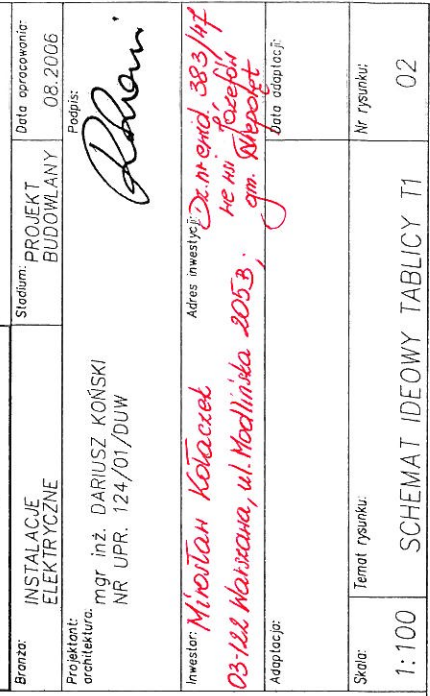 Branża:
INSTALACJE
ELEKTRYCZNE
Stadium:
PROJEKT
BUDOWLANY
Data opracowania:
08.2006
Projektant:
architektura:
mgr inż. DARIUSZ KOŃSKI
NR UPR. 124/01/DUW
Podpis:
Inwestor: Mirosław Kołaczek
03-122 Warszawa, ul. Modlińska 205B;
Adres inwestycji: Dz. nr ewid. 383/47
we wsi Józefów
gm. Nieporęt
Adaptacja:
Data adaptacji:
Skala:
1:100
Temat rysunku:
SCHEMAT IDEOWY TABLICY T1
Nr rysunku:
02